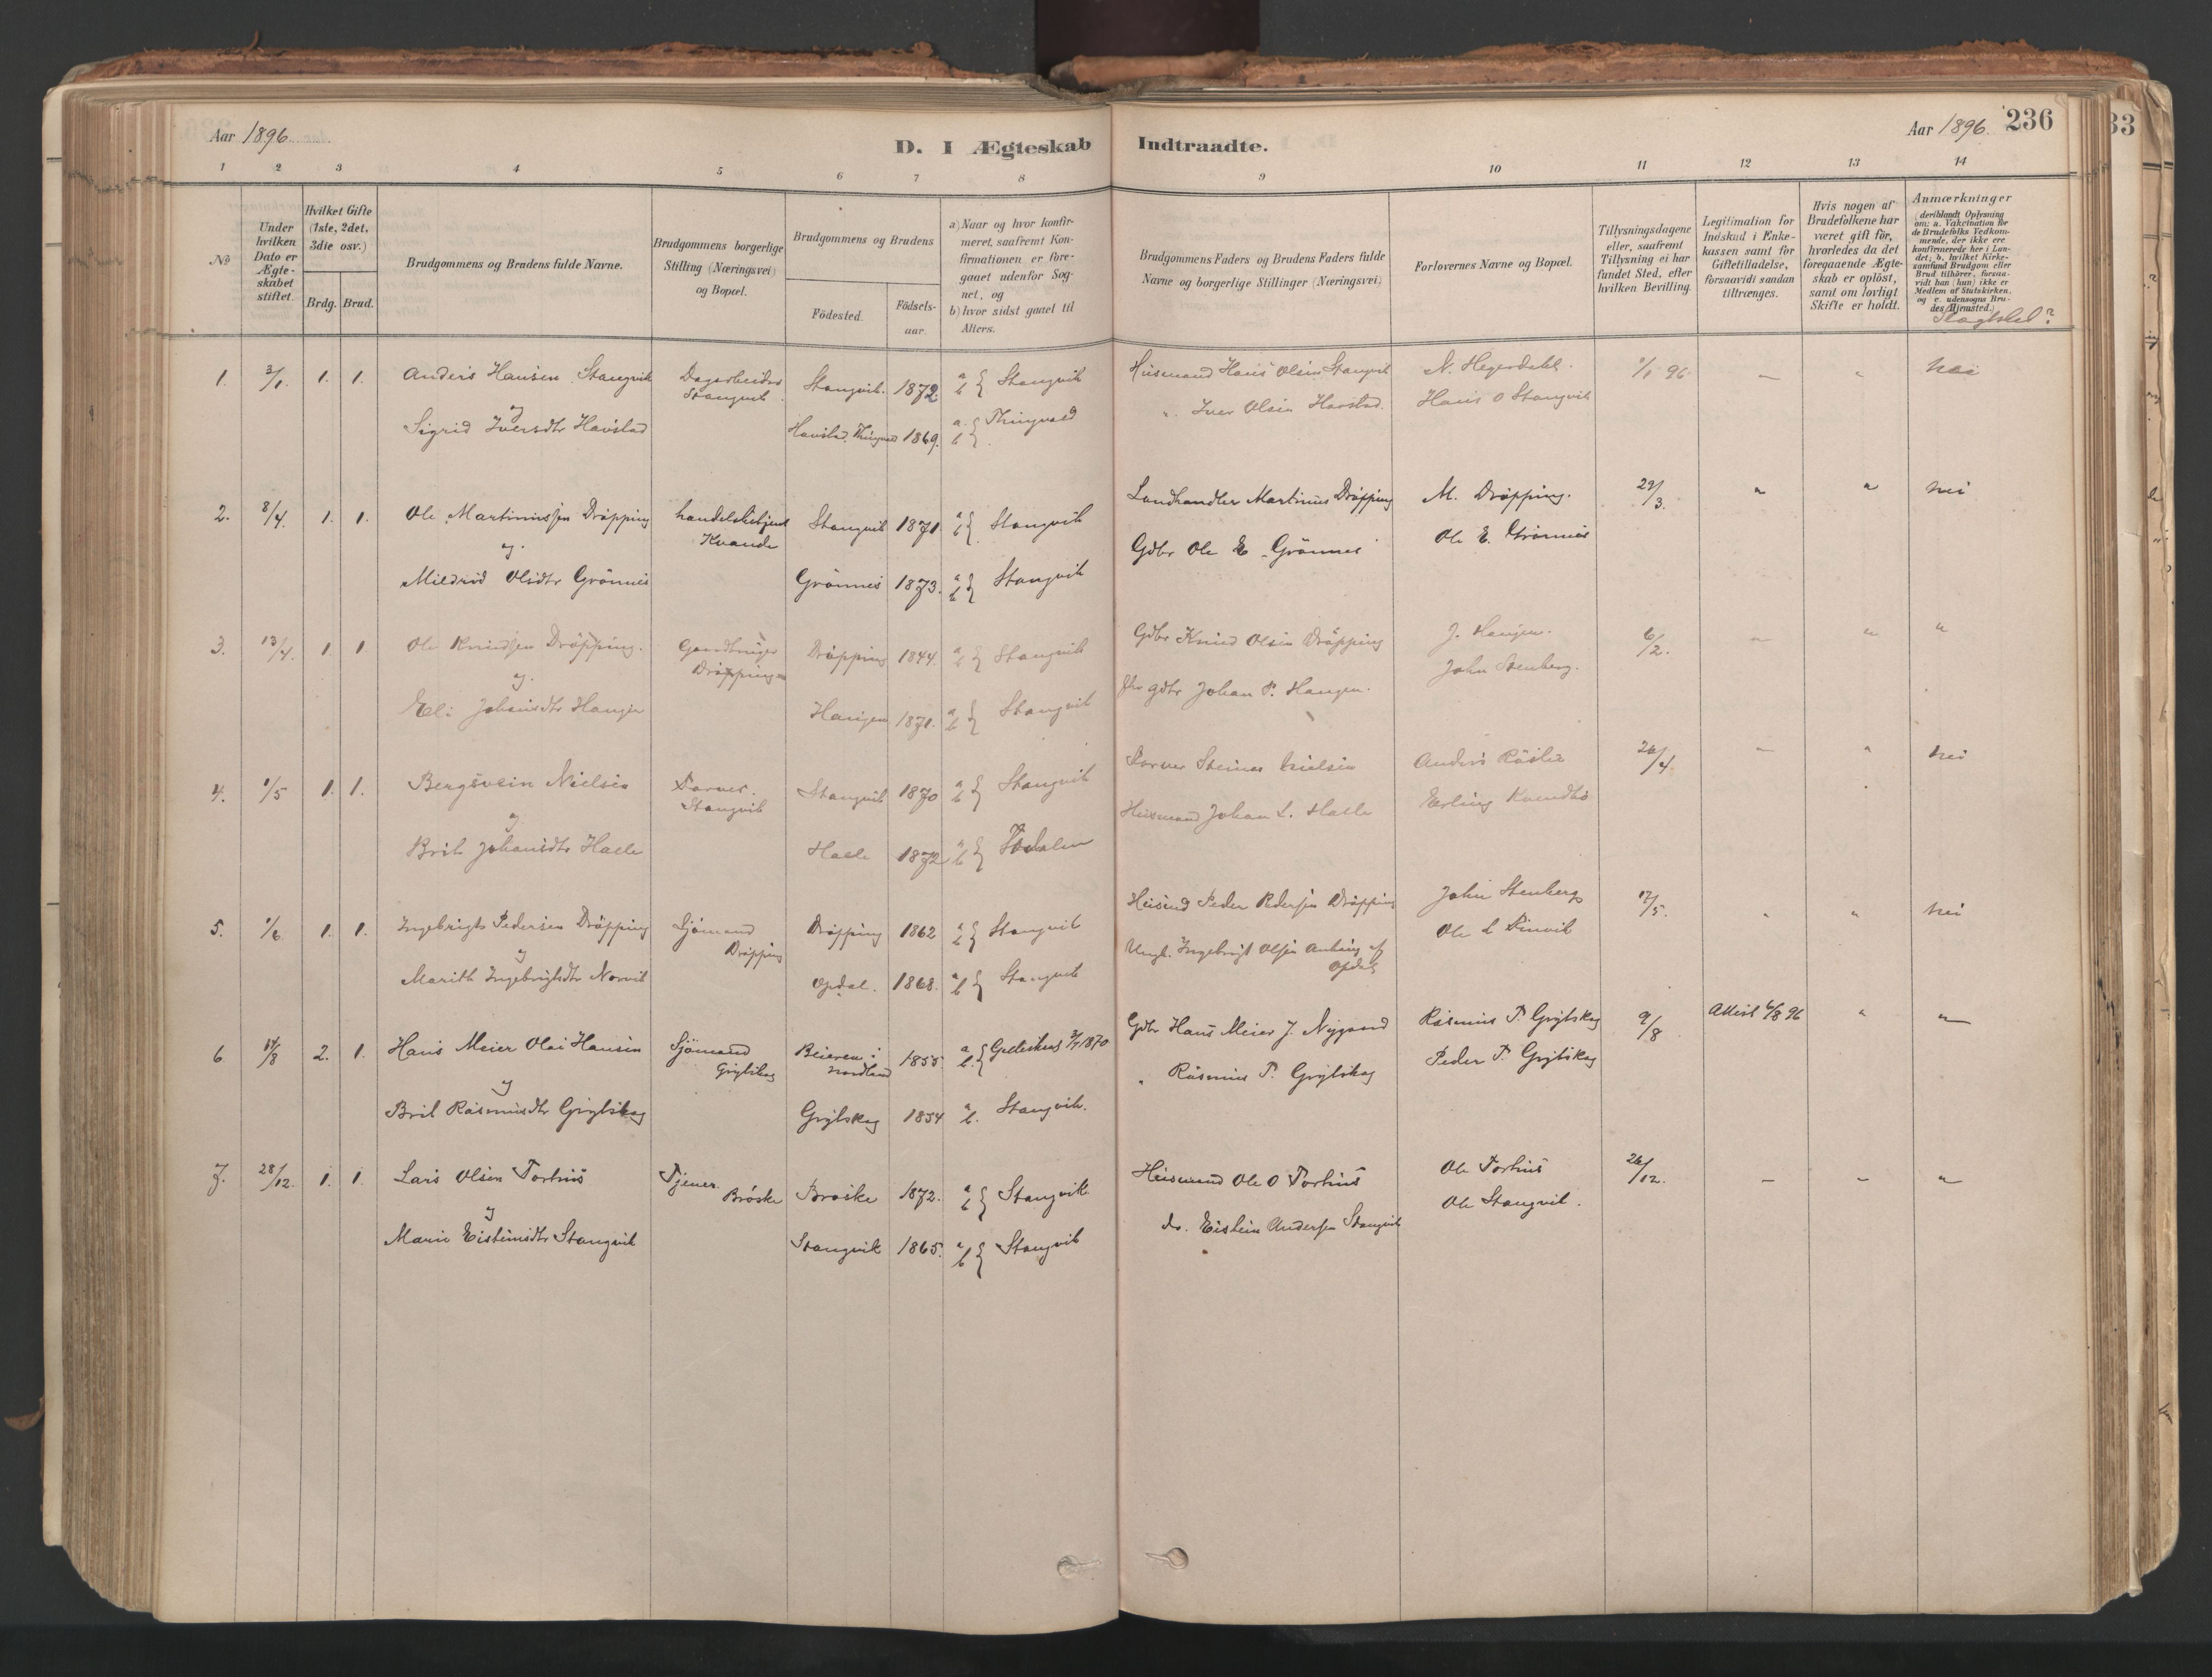 Aar 1896.
D. I Ægteskab Indtraadte.
Aar 1896. 236
33
1 2 3 4 5 6 7 8 9 10 11 12 13 14
No
Under hvilken Dato er Ægte-skabet stiftet.
Hvilket Gifte (1ste, 2det, 3die osv.)
Brdg. Brud.
Brudgommens og Brudens fulde Navne.
Brudgommens borgerlige Stilling (Næringsvei) og Bopæl.
Brudgommens og Brudens
Födested.
Födsels-aar.
a) Naar og hvor konfir-meret, saafremt Kon-firmationen er fore-gaaet udenfor Sog-net, og
b) hvor sidst gaaet til Alters.
Brudgommens Faders og Brudens Faders fulde Navne og borgerlige Stillinger (Næringsvei)
Forlovernes Navne og Bopæl.
Tillysningsdagene eller, saafremt Tillysning ei har fundet Sted, efter hvilken Bevilling.
Legitimation for Indskud i Enke-kassen samt for Giftetilladelse, forsaavidt saadan tiltrænges.
Hvis nogen af Brudefolkene har været gift för, hvorledes da det foregaaende Ægte-skab er oplöst, samt om lovligt Skifte er holdt.
Anmærkninger
(deriblandt Oplysning om: a. Vakcination for de Brudefolks Vedkom-mende, der ikke ere konfirmerede her i Lan-det; b. hvilket Kirke-samfund Brudgom eller Brud tilhörer, forsaa-vidt han (hun) ikke er Medlem af Statskirken, og c. udensogns Bru-des Hjemsted.)
Slagtskab?
1. 3/1. 1. 1. Anders Hansen Stangvik Dagarbeider Stangvik. Stangvik. 1872. a b } Stangvik Husmand Hans Olsen Stangvik N. Hegerdahl. 1/1 96 — " nei
og
Sigrid Iversdtr Havstad Havstad, Thingvold 1869. a. b } Thingvold " Iver Olsen Havstad. Hans O Stangvik
2. 8/4. 1. 1. Ole Martinussen Dröpping handelsbetjent Kvande Stangvik 1871. a b } Stangvik Landhandler Martinus Dröpping M. Dröpping. 29/3. " " nei
og.
Mildrid Olsdtr Grönnes Grönnes 1873. a b } Stangvik Gdbr Ole E. Grönnes Ole E. Grönnes
3. 13/4. 1. 1. Ole Knudsen Dröpping. Gaardbruger Dröpping Dröpping 1844. a b } Stangvik Gdbr Knud Olsen Dröpping J. Haugen. 6/2. " " "
og.
Eli Johansdtr Haugen Haugen 1871. a b } Stangvik gdbr Johan P. Haugen. John Stenberg.
4. 1/5 1. 1. Bergsvein Nielsen Farver. Stangvik Stangvik 1870 a b } Stangvik Farver Steiner Nielsen Anders 26/4. — " nei
og
Brit Johansdtr Halle Halle 1872 a b } Todalen Husmand Johan L. Halle Erling Kvendbö
5. 1/6 1. 1. Ingebrigt Pedersen Dröpping Sjömand Dröpping Dröpping 1862 a b } Stangvik Husmd Peder Pedersen Dröpping John Stenberg 17/5. " " nei
og
Marith Ingebrigtsdtr Norvik Opdal. 1868. a b } Stangvik Ungk. Ingebrigt Olsen af Opdal Ole L
6 14/8 2. 1. Hans Meier Olai Hansen Sjömand Grytskog Beieren i Nordland 1855. a b. } Gilleskaal 3/7 1870 Gdbr Hans Meier J. Nygaard Rasmus P. Grytskog 9/8 Attest 6/8 96 " "
og
Brit Rasmusdtr Grytskog Grytskog 1854 a b. Stangvik. " Rasmus P. Grytskog Peder P. Grytskog
7. 28/12. 1. 1. Lars Olsen Torhus Tjener. Bröske Bröske 1872. a b } Stangvik Husmand Ole O Torhus Ole Torhus 26/12. — " "
og
Marie Eisteinsdtr Stangvik Stangvik 1865. a b } Stangvik do. Eistein Andersen Stangvik Ole Stangvik.